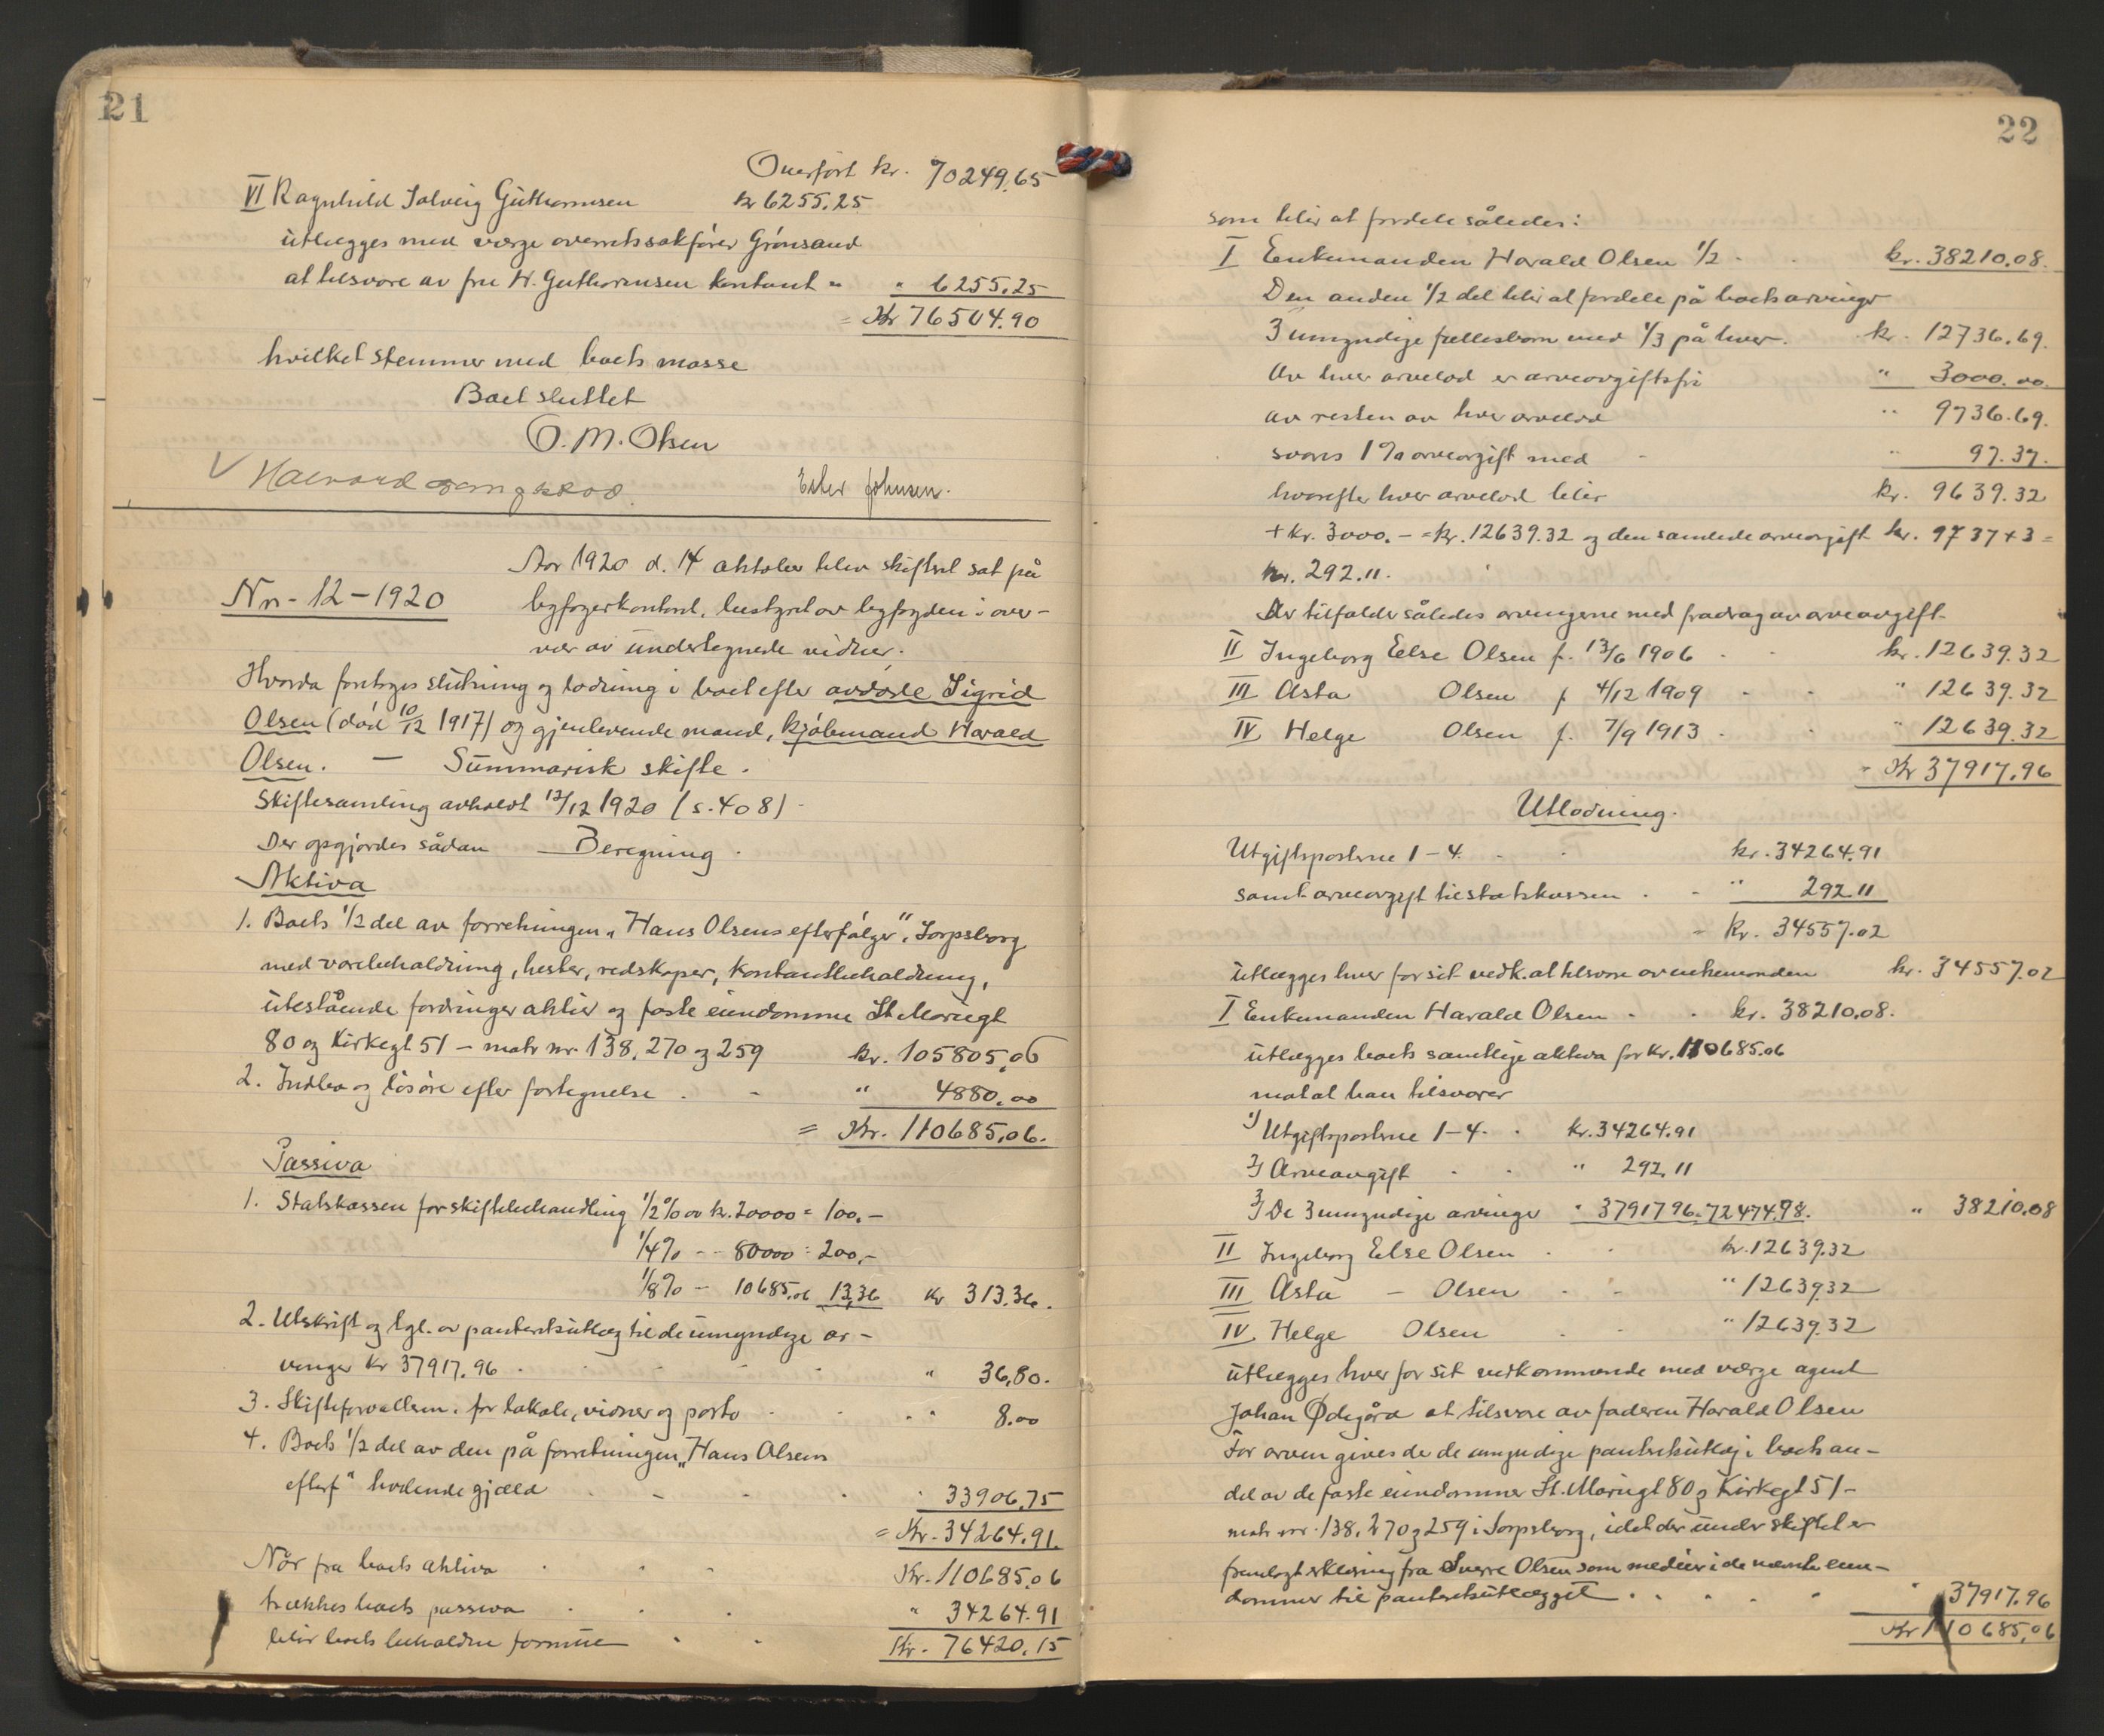 21
Overført kr. 70249.65
VI Ragnhild Solveig Guthormsen kr 6255.25
utlægges med værge overretssakfører Grønsand
at tilsvare av fru H. Guthormsen kontant " " 6255.25
= Kr 76504.90
hvilket stemmer med boets masse
Boet sluttet
O. M. Olsen
Ester Johnsen.
Aar 1920 d. 14 oktober blev skifteret sat på
Nr. 12-1920
byfogedkontoret, bestyret av byfogden i over-
vær av undertegnede vidner.
Hvorda foretoges slutning og lodning i boet efter avdøde Sigrid
Olsen (død 10/12 1917) og gjenlevende mand, kjøbmand Harald
Olsen. — Summarisk skifte.
Skiftesamling avholdt 13/12 1920 (s. 408)
Der opgjordes sådan Beregning.
Aktiva
1. Boets 1/2 del av forretningen "Hans Olsens efterfølger", Sarpsborg
med varebeholdning, hester, redskaper, kontantbeholdning,
utestående fordringer aktier og faste eiendomme St. Mariegt
80 og Kirkegt 51 – matr nr 138, 270 og 259 kr. 105805,06
2. Indbo og løsøre efter fortegnelse . - " 4880.00
= Kr. 110685,06.
Passiva
1. Statskassen for skiftebehandling 1/2% av kr. 20000 = 100.-
1/4% - - 80000 = 200,-
1/8% - 10685.06 13,36 Kr 313.36.
2. Utskrift og tgl. av panteretsutlæg til de umyndige ar-
vinger Kr 37917.96 . . . " 36,80.
3. Skifteforvalteren. for lokale, vidner og porto . . " 8.00
4. Boets 1/2 del av den på forretningen "Hans Olsens
efterf" hvilende gjæld . - . 33906,75
= Kr. 34264.91.
Når fra boets aktiva . . . Kr. 110685.06
trækkes boets passiva . . . " 34264.91
blir boets beholdne formue . . Kr. 76420.15
22
som blir at fordele således:
I Enkemanden Harald Olsen 1/2 . . kr. 38210.08.
Den anden 1/2 del blir at fordele på boets arvinger
3 umyndige fællesbarn med 1/3 på hver. kr. 12736.69.
Av hver arvelod er arveavgiftsfri " 3000.00.
av resten av hver arvelod " 9736.69.
svares 1% arveavgift med - " 97.37.
hvorefter hver arvelod blir kr. 9639.32
+ kr. 3000.- = kr. 12639.32 og den samlede arveavgift kr. 97 37 x 3 =
kr. 292.11.
Der tilfalder således arvingerne med fradrag av arveavgift.
II Ingeborg Else Olsen f. 13/6 1906 . . kr. 12639.32
III Asta Olsen f 4/12 1909 - . " 12639.32
IV Helge Olsen f. 7/9 1913 . . " 12639.32
= Kr 37917,96
Utlodning.
Utgiftsposterne 1–4. . . kr. 34264.91
samt arveavgift til statskassen . - " 292.11
= Kr. 34557.02
utlægges hver for sit vedk. at tilsvare av enkemanden kr. 34557.02
I Enkemanden Harald Olsen . . kr. 38210.08.
utlægges boets samtlige aktiva for kr. 110685.06
mot at han tilsvarer
1) Utgiftsposterne 1–4. . kr. 34264.91
2) Arveavgift . . " 292.11
3) De 3 umyndige arvinger " 37917 96. 72474.98. " 38210.08
II Ingeborg Else Olsen . . kr. 12639.32
III Asta – Olsen . . " 12639.32
IV Helge Olsen . . " 12639.32
utlægges hver for sit vedkommende med værge agent
Johan Ødegård at tilsvare av faderen Harald Olsen
For arven gives de de umyndige panteretsutlæg i boets an-
del av de faste eiendommer St. Mariegt 80 og Kirkegt 51 –
matr nr. 138, 270 og 259 i Sarpsborg, idet der under skiftet er
fremlagt erklæring fra Sverre Olsen som medeier i de nævnte eien-
dommer til panteretsutlægget . . . . . " 37917.96
Kr 110685,06